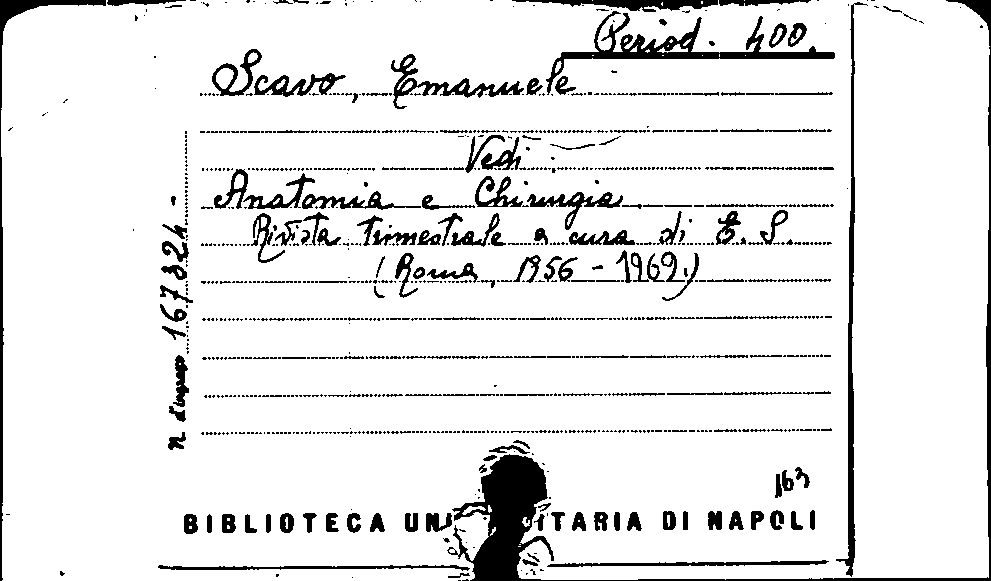 Period. 400.
Scavo, Emanuele
Vedi:
Anatomia e Chirurgia.
Rivista trimestrale a cura di E. S.
(Roma, 1956 - 1969.)
n. d'ingresso 167324-
163
BIBLIOTECA UNI ITARIA DI NAPOLI